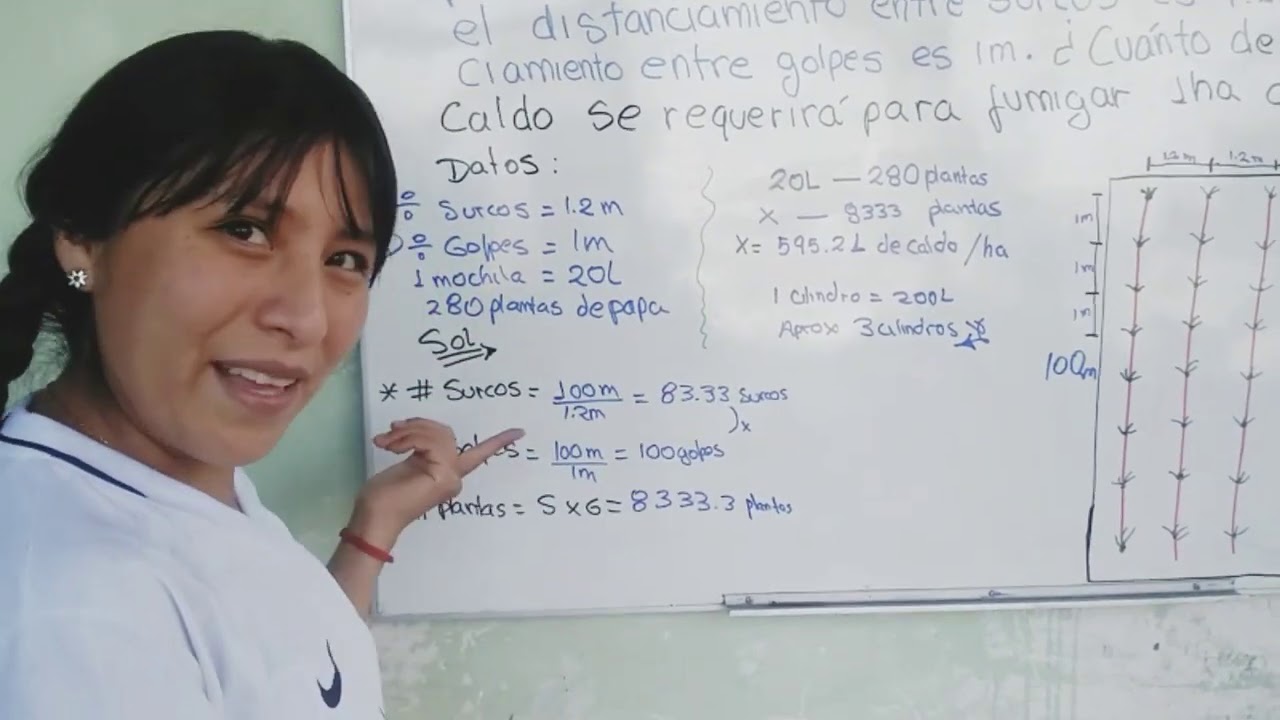 el distanciamiento entre surcos es
ciamiento entre golpes es 1m. ¿Cuánto de
Caldo se requerirá para fumigar 1ha
Datos:
÷ Surcos = 1.2m
÷ Golpes = 1m
1 mochila = 20L
280 plantas de papa
Sol
* # Surcos = 100m / 1.2m = 83.33 Surcos
)x
= 100m / 1m = 100golpes
plantas = S x G = 8333.3 plantas
20L — 280 plantas
x — 8333 plantas
x = 595.2L de caldo /ha
1 cilindro = 200L
Aprox 3 cilindros
1.2m 1.2m
1m
1m
1m
100m